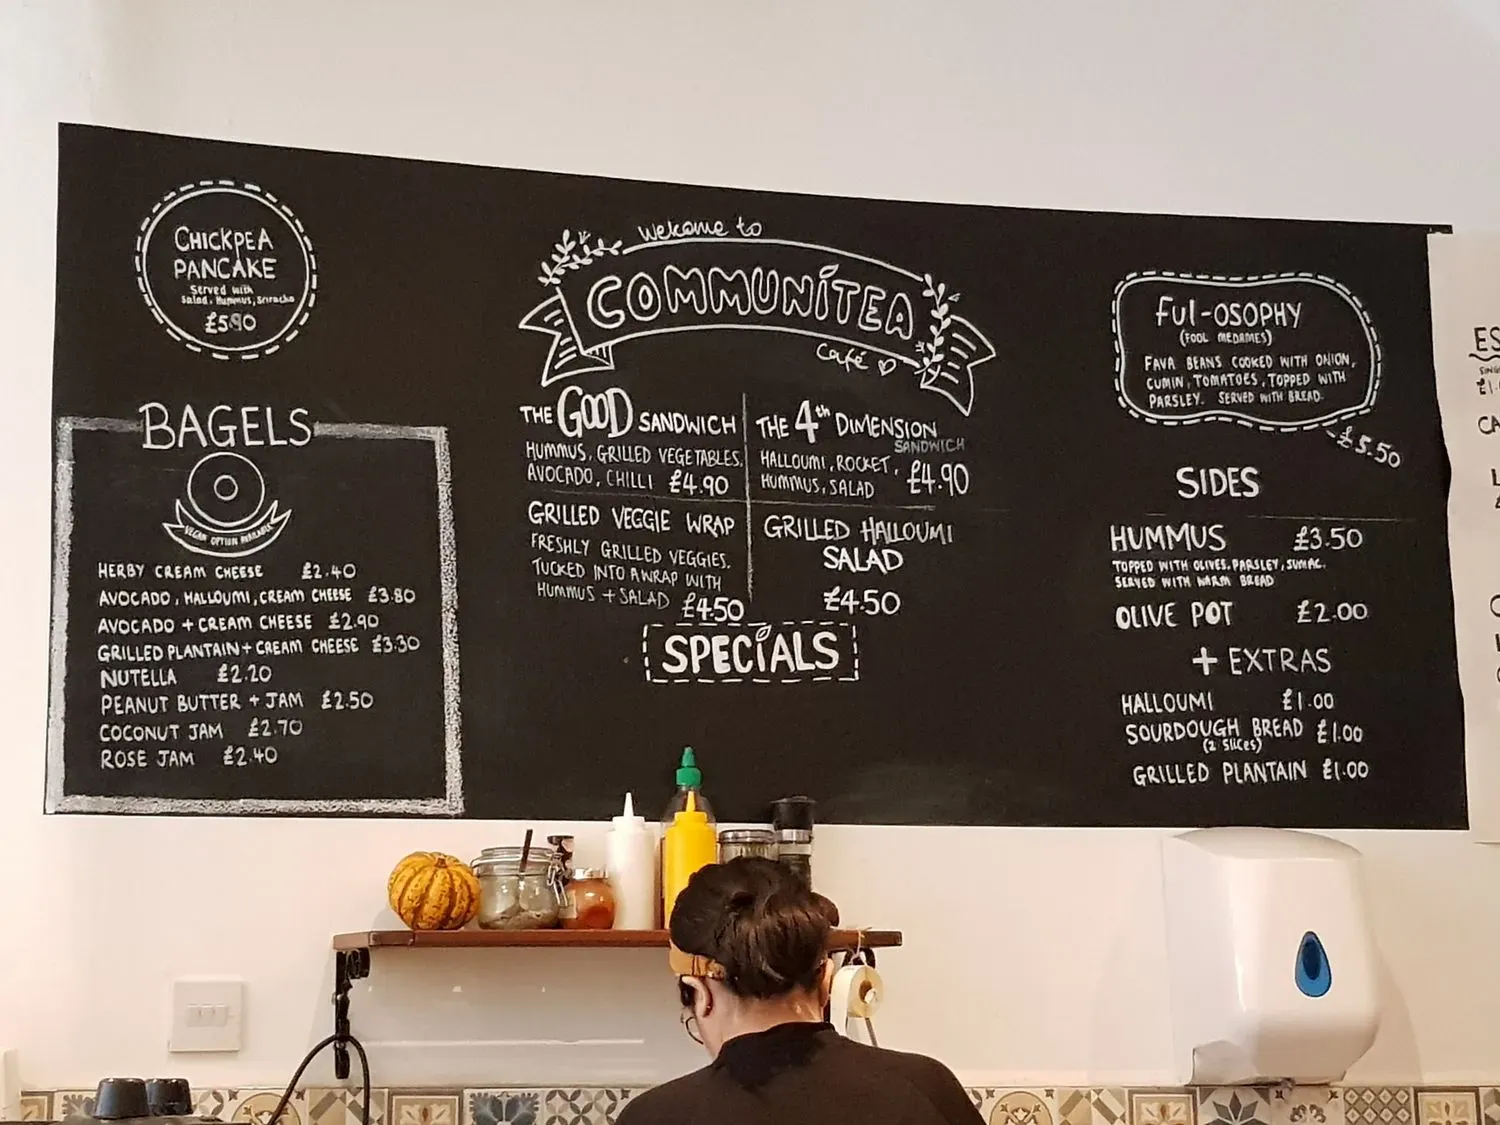 CHICKPEA
PANCAKE
Served with
Salad, Hummus, Sriracha
£5.90
BAGELS
VEGAN OPTION AVAILABLE
HERBY CREAM CHEESE £2.40
AVOCADO, HALLOUMI, CREAM CHEESE £3.80
AVOCADO + CREAM CHEESE £2.90
GRILLED PLANTAIN + CREAM CHEESE £3.30
NUTELLA £2.20
PEANUT BUTTER + JAM £2.50
COCONUT JAM £2.70
ROSE JAM £2.40
Welcome to
COMMUNITEA
Café
THE GOOD SANDWICH
HUMMUS, GRILLED VEGETABLES,
AVOCADO, CHILLI £4.90
THE 4th DIMENSION
SANDWICH
HALLOUMI, ROCKET,
HUMMUS, SALAD £4.90
GRILLED VEGGIE WRAP
FRESHLY GRILLED VEGGIES.
TUCKED INTO A WRAP WITH
HUMMUS + SALAD £4.50
GRILLED HALLOUMI
SALAD
£4.50
SPECIALS
Ful-OSOPHY
(FOOL MEDAMES)
FAVA BEANS COOKED WITH ONION,
CUMIN, TOMATOES, TOPPED WITH
PARSLEY. SERVED WITH BREAD.
£5.50
SIDES
HUMMUS £3.50
TOPPED WITH OLIVES, PARSLEY, SUMAC.
SERVED WITH WARM BREAD
OLIVE POT £2.00
+ EXTRAS
HALLOUMI £1.00
SOURDOUGH BREAD £1.00
(2 Slices)
GRILLED PLANTAIN £1.00
ES
CA